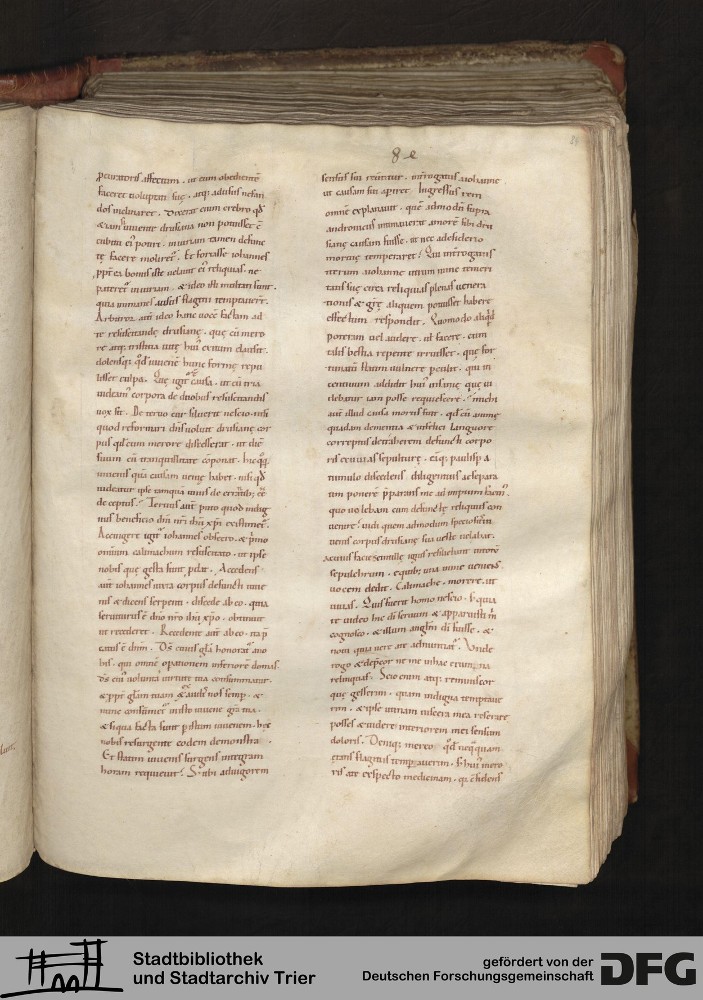 8 e
procuratoris affectum . ut eum obedientē
faceret uoluptati suę . atq; adusus nefan
dos inclinaret . Dixerat enim crebro qđ
& iam uiuente drusiana non potuisset ē
cubitu ei potiri . iniuriam tamen defunc
tę facere moliret̃ . Et forsasse iohannes
ppt̃ea bonus iste uoluit ei reliquias ne
paterent̃ iniuriam . & ideo illi multati sunt .
quia inmanes ausus flagitii temptauert̃ .
Arbitror aut̃ ideo hanc uocē factam ad
te resuscitandę drusianę . quę cū mero
re atq; tristitia uitę hui exitum clausit .
dolensq; qđ iuuenē hunc formę repu
lisset culpa . Quę igit̃ causa . ut cū tria
uideam corpora de duobus resuscitandis
uox sit . De seruo cur siluerit nescio . nisi
quod reformari dn̄s uoluit drusianę cor
pus qđ cum merore discesserat . ut diē
suum cū tranquillitate cōponat . hic q̊q
iuuenis quā causam uenię habet . nisi qđ
uideatur ipse tamquā unus de errantib; ēē
deceptus . Tertius aut̃ puto quod indig
nus beneficio dn̄i nr̄i ih̄u xp̄i existimet̃ .
Accingere igit̃ iohannes obsecro . & primo
omnium calimachum resuscitato . ut ipse
nobis quę gesta sunt pdat . Accedens
aut̃ iohannes iuxta corpus defuncti iuue
nis & dicens serpenti . discede ab eo . quia
seruiturus ē dn̄o nr̄o ih̄u xp̄o . obtinuit
ut recederet . Recedente aut̃ ab eo . ita p̄
catus ē dn̄m . Ds̄ cuius glā honorat̃ a no
bis . qui omnē opationem inferiorē domas .
ds̄ cui uolunta uirtute tua consummatur .
& ppt̃ glām tuam & audis nos semp . &
nunc consumet̃ in isto iuuene grā tua .
& siqua facta sunt p istum iuuenem . hęc
nobis resurgente eodem demonstra .
Et statim iuuenis surgens integram
horam requieuit . S; ubi ad uigorem
sensus sui reuersus . inťrogatus a iohanne
ut causam sui apriret . Ingressus rem
omnē explanauit . quē admodū supra
andronicus intimauerat amorē sibi dru
sianę causam fuisse . ut nec a desiderio
mortuę temperaret . Qui inťrogatus
iterum a iohanne utrum nunc temeri
tatis suę circa reliquias plenas uenera
tionis & gr̄ę aliquem potuisset habere
effectum respondit . Quomodo aliqđ
poteram uel audere . ut facere . cum
talis bestia repente irruisset . quę for
tunatū statim uulnere pculit . qui in
centiuum addidit hui insanię quę ui
debatur iam posse requiescere . michi
aut̃ illud causa mortis fuit . qđ cū animę
quadam dementia & infelici languore
correptus detraherem defuncti corpo
ris exuuias sepulturę . eāq; paulisp a
tumulo discedens . diligentius ac separa
tim ponere p̄parans me ad impium facin̄ .
quo uolebam cum defunctę reliquiis con
uenire . uidi quem admodum speciosissim̄
uenis corpus drusianę sua ueste uelabat .
a cuius facie scintillę ignis resiluerunt intotū
sepulchrum . e quib; una in me ueniens
uocem dedit . Calimache . morere . ut
uiuas . Quis fuerit homo nescio . S; quia
te uideo hic dī seruum & apparuisti m̄
cognosco . & illum anglm̄ dī fuisse . &
noui quia uere aīt admiratus . Unde
rogo & deprecor ne me in hac erumna
relinquas . Scio enim atq; reminiscor
quę gesserim . quam indigna temptaue
rim . & ipse utinam uiscera mea reserare
posses & uidere interiorem mei sensum
doloris . Denuq; mereo . qđ nequiquam
tanti flagitiis temptauerim . S; hui mero
ris a te exspecto medicinam . qā chelens
Stadtbibliothek
und Stadtarchiv Trier
gefördert von der
Deutschen Forschungsgemeinschaft
DFG